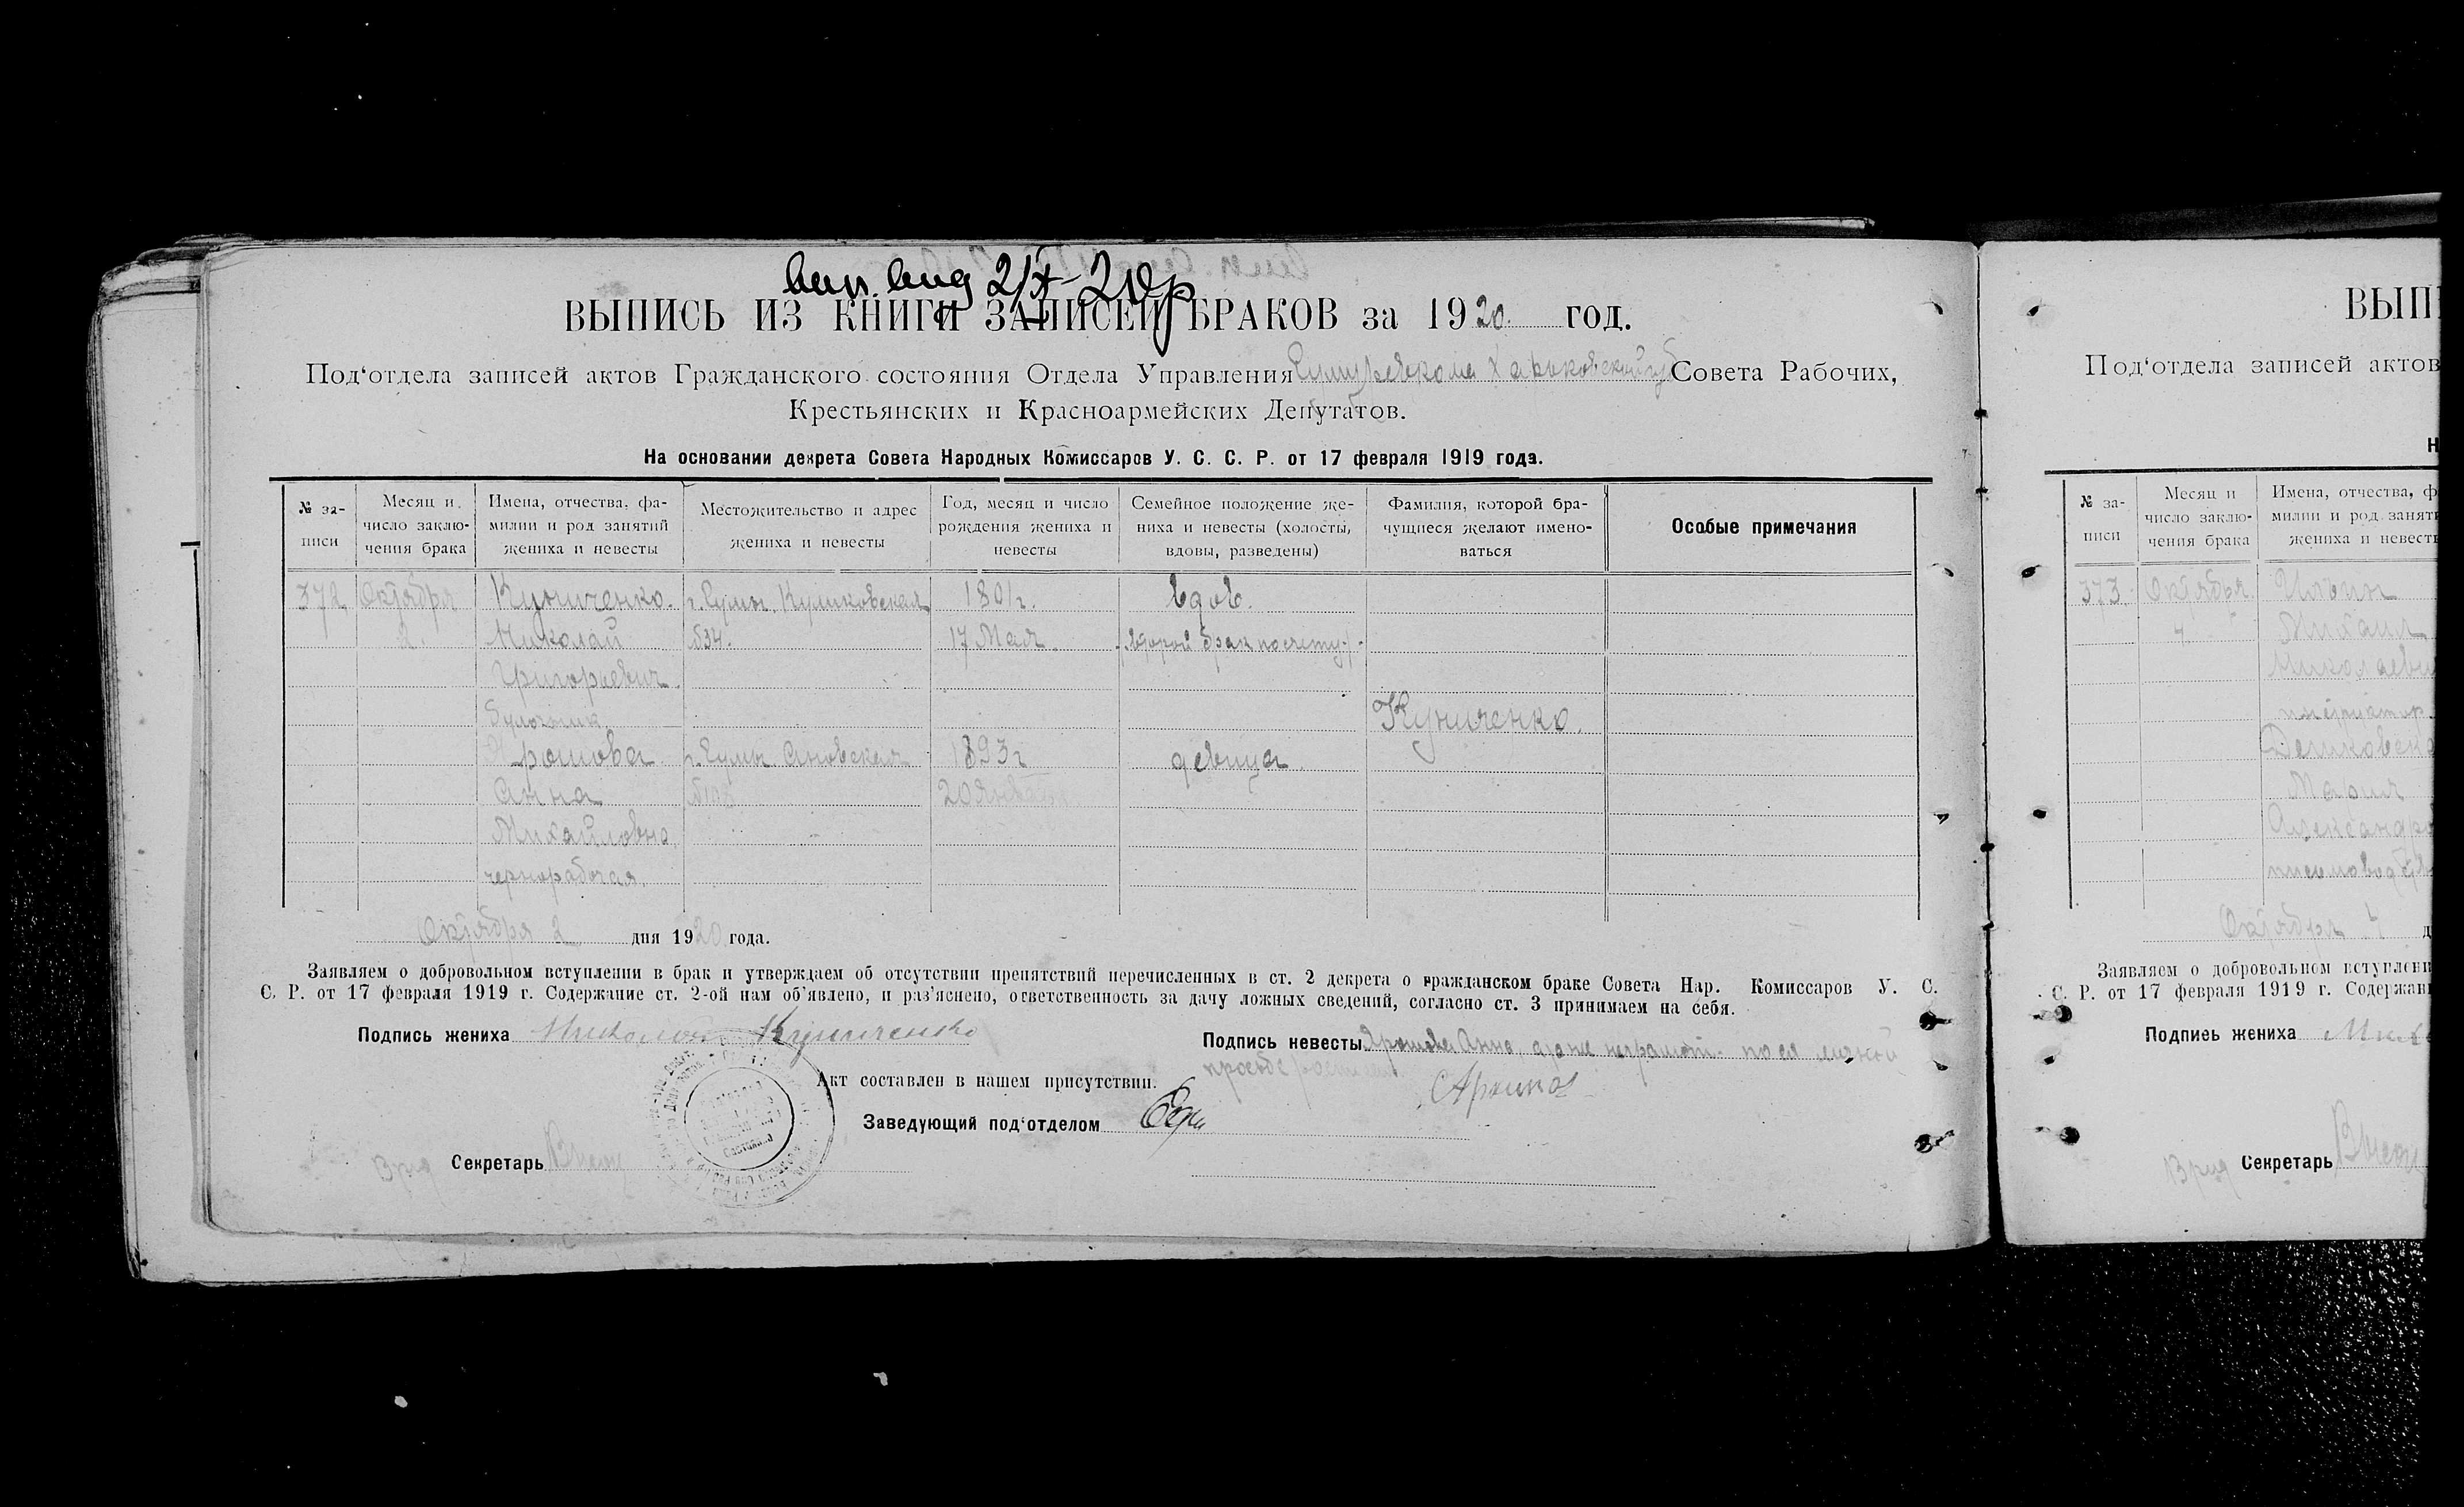 вып. выд 2/X 20 р
ВЫПИСЬ ИЗ КНИГИ ЗАПИСЕЙ БРАКОВ за 1920 год.
Под‘отдела записей актов Гражданского состояния Отдела Управления Сумуревкома Харьковской губ Совета Рабочих,
Крестьянских и Красноармейских Депутатов.
На основании декрета Совета Народных Комиссаров У. С. С. Р. от 17 февраля 1919 года.
№ за-
писи
Месяц и
число заклю-
чения брака
Имена, отчества, фа-
милии и род занятий
жениха и невесты
Местожительство и адрес
жениха и невесты
Год, месяц и число
рождения жениха и
невесты
Семейное положение же-
ниха и невесты (холосты,
вдовы, разведены)
Фамилия, которой бра-
чущиеся желают имено-
ваться
Особые примечания
372 Октября Куниченко. г. Сумы. Куликовская 1891г. вдов.
2. Николай №34. 17 Мая. (второй брак по счету)
Григорьевич
булочник. Куниченко.
Ярошова г. Сумы 1893г девица.
Анна 20 Января
Михайловна
чернорабочая.
Октября 2 дня 1920 года.
Заявляем о добровольном вступлении в брак и утверждаем об отсутствии препятствий перечисленных в ст. 2 декрета о гражданском браке Совета Нар. Комиссаров У. С.
С. Р. от 17 февраля 1919 г. Содержание ст. 2-ой нам об‘явлено, и раз‘яснено, ответственность за дачу ложных сведений, согласно ст. 3 принимаем на себя.
Подпись жениха Николай Куниченко
Подпись невесты Ярошова Анна, а за неграмотн. по ея личной
просьбе
Акт составлен в нашем присутствии.
Заведующий под‘отделом
Врид Секретарь
ВЫП
Под‘отдела записей актов
Н
№ за-
писи
Месяц и
число заклю-
чения брака
Имена, отчества, ф
милии и род занят
жениха и невест
373. Октября Ильин
4 Михаил
Николаеви
инструктор
Мария
Александро
Октября 4 д
Заявляем о добровольном вступлени
С. Р. от 17 февраля 1919 г. Содержан
Подпись жениха
Врид Секретарь